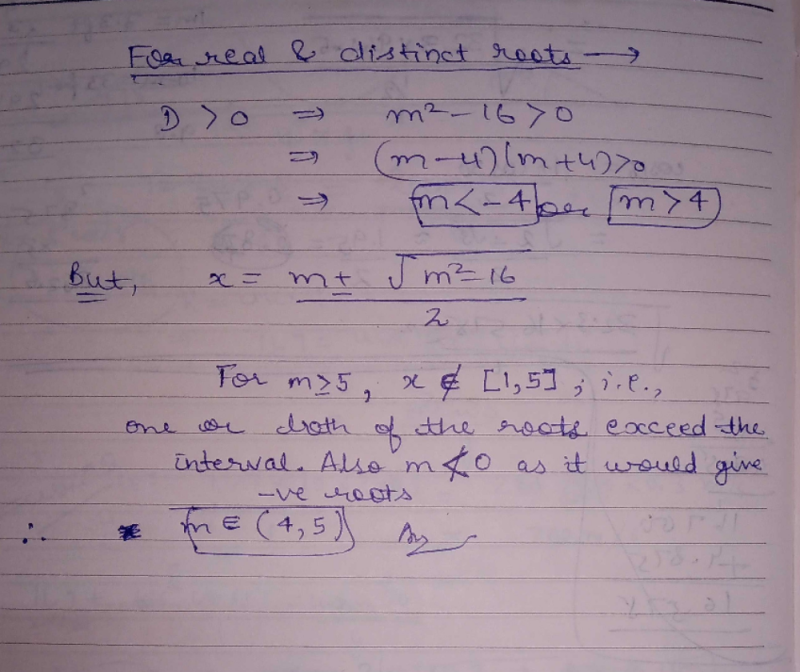 For real & distinct roots →
D > 0 ⇒ m² - 16 > 0
⇒ (m-4)(m+4)>0
⇒ m < -4 or m > 4
But, x = m ± √m²-16
2
For m ≥ 5, x ∉ [1,5] ; i.e.,
one or both of the roots exceed the
interval. Also m ≮ 0 as it would give
-ve roots
∴ m ∈ (4, 5) Ans